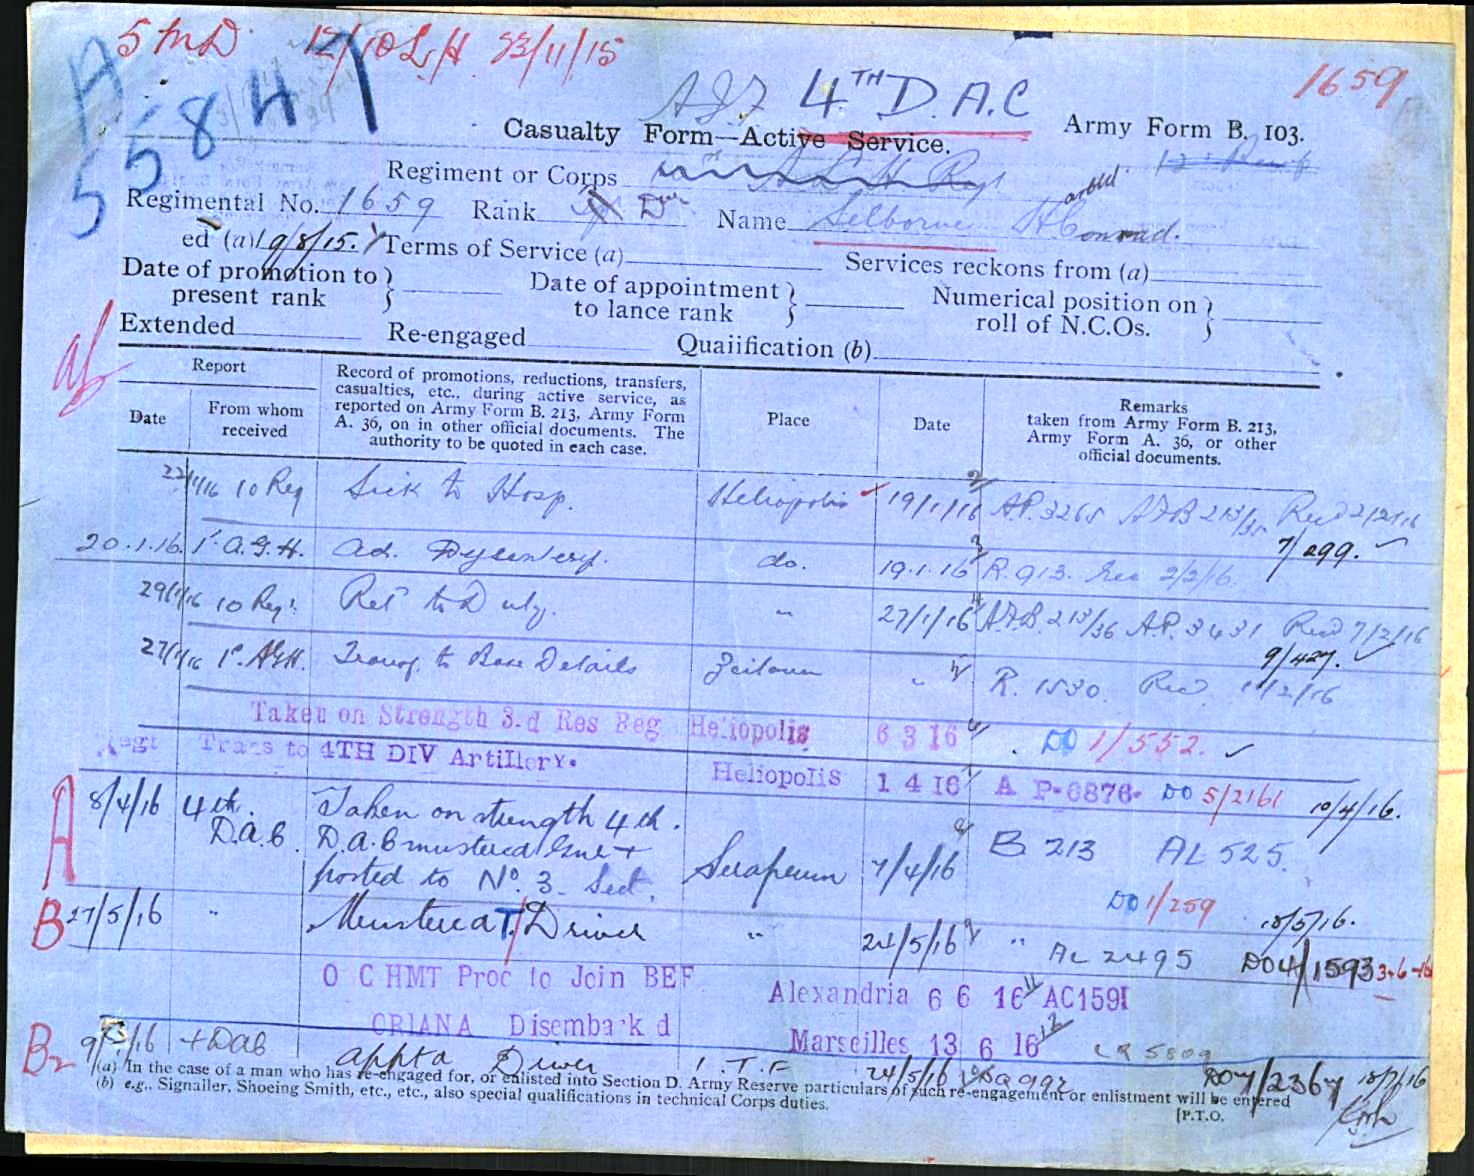 5 MD 12/10 L.H. 23/11/15
1659
A
55847
AIF 4TH D.A.C
Casualty Form—Active Service.
Army Form B. 103.
Regiment or Corps A L H Regt
Regimental No. 1659 Rank Dvr Name Selborne H Conrad.
ed (a) 19/8/15. Terms of Service (a) Services reckons from (a)
Date of promotion to present rank } Date of appointment to lance rank } Numerical position on roll of N.C.Os. }
Extended Re-engaged Quaiification (b)
Report
Record of promotions, reductions, transfers, casualties, etc., during active service, as reported on Army Form B. 213, Army Form A. 36, on in other official documents. The authority to be quoted in each case.
Place
Date
Remarks taken from Army Form B. 213, Army Form A. 36, or other official documents.
Date
From whom received
22/1/16 10 Reg Sick to Hosp. Heliopolis 19/1/16 AP. 3265 AFB 213/35 Recd 2/2/16
7/299.
20.1.16. 1st A.G.H. ad. Dysentery. do. 19.1.16 R. 913. Rec 2/2/16
29/1/16 10 Regt. Ret to Duty. " 27/1/16 AFB. 213/36 AP. 3431 Recd 7/2/16
9/427.
27/1/16 1st AGH. Transf. to Base Details Zeitoun " R. 1530. Rec /2/16
Taken on Strength 3.d Res Reg Heliopolis 6 3 16 DO 1/552.
Regt Trans to 4TH DIV Artillery. Heliopolis 1 4 16 A P-6876- DO 5/2161 10/4/16.
A 8/4/16 4th. D.A.C. Taken on strength 4th. D.A.C mustered Gnr + posted to No. 3 Sect. Serapeum 7/4/16 B 213 AL 525.
DO 1/259 18/5/16.
B 27/5/16 " Mustered T/Driver " 24/5/16 " AL 2495 DO4/1593 3-6-16
O C HMT Proc to Join BEF Alexandria 6 6 16 AC1591
ORIANA Disembark d Marseilles 13 6 16
B2 9/ /16 4 DAC appta Driver I.T.F 24/5/16 DO7/2367 18/7/16
(a) In the case of a man who has re-engaged for, or enlisted into Section D. Army Reserve particulars of such re-engagement or enlistment will be entered
(b) e.g., Signaller, Shoeing Smith, etc., etc., also special qualifications in technical Corps duties.
[P.T.O.